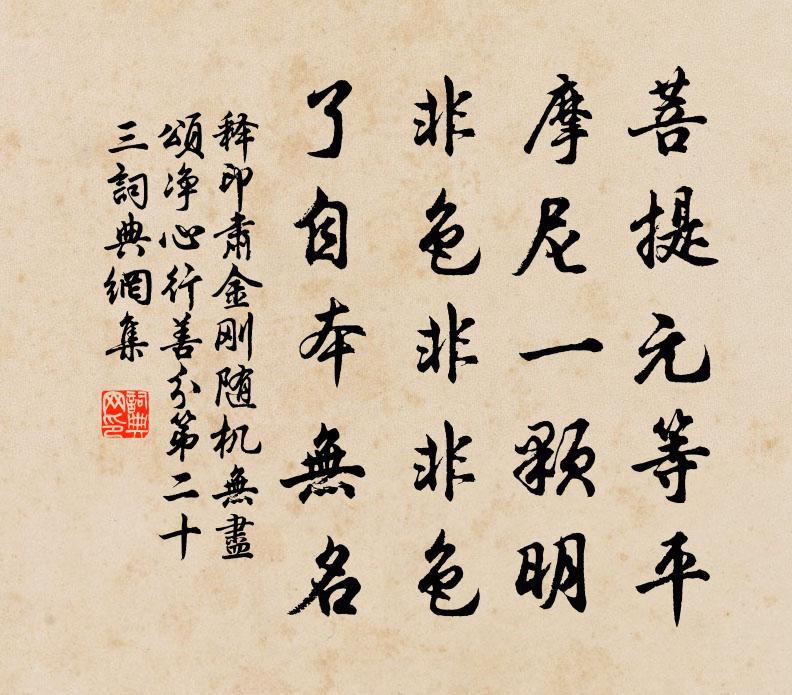 菩提元等平
摩尼一顆明
非色非非色
了自本無名
释印肃金刚随机無盡
頌净心行善分第二十
三詞典網集
詞典
网印